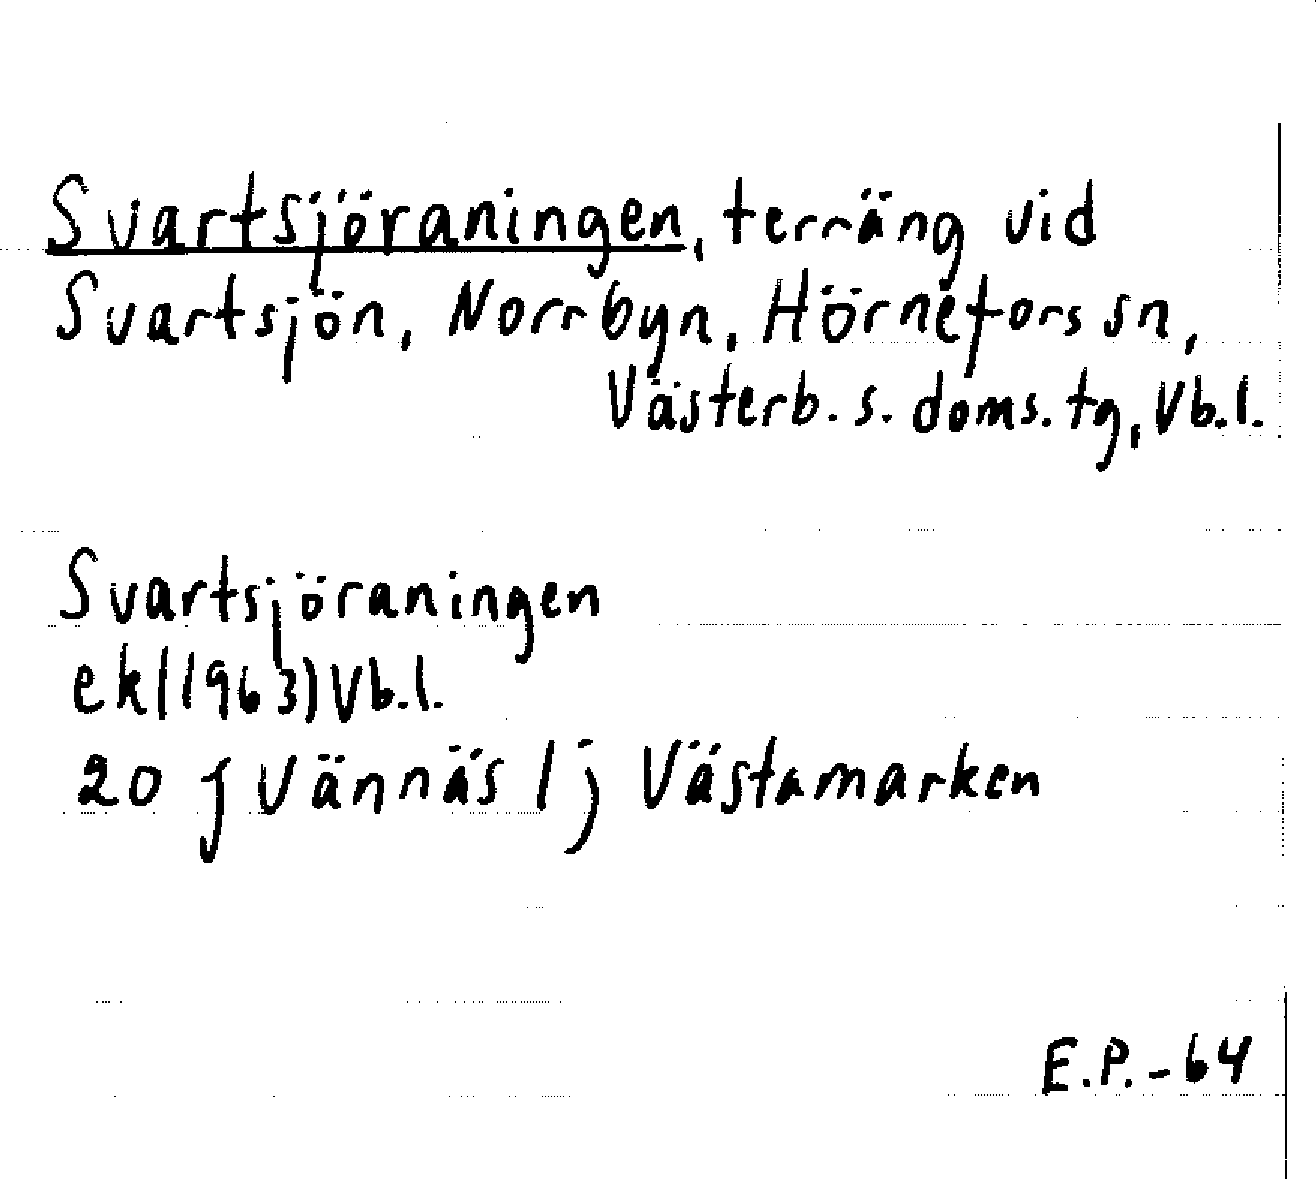 Svartsjöraningen, terräng vid
Svartsjön, Norrbyn, Hörnefors sn,
Västerb. s. doms. tg, Vb.l.
Svartsjöraningen
ek(1963)Vb.l.
20 f Vännäs 1 j Västamarken
E.P.-64